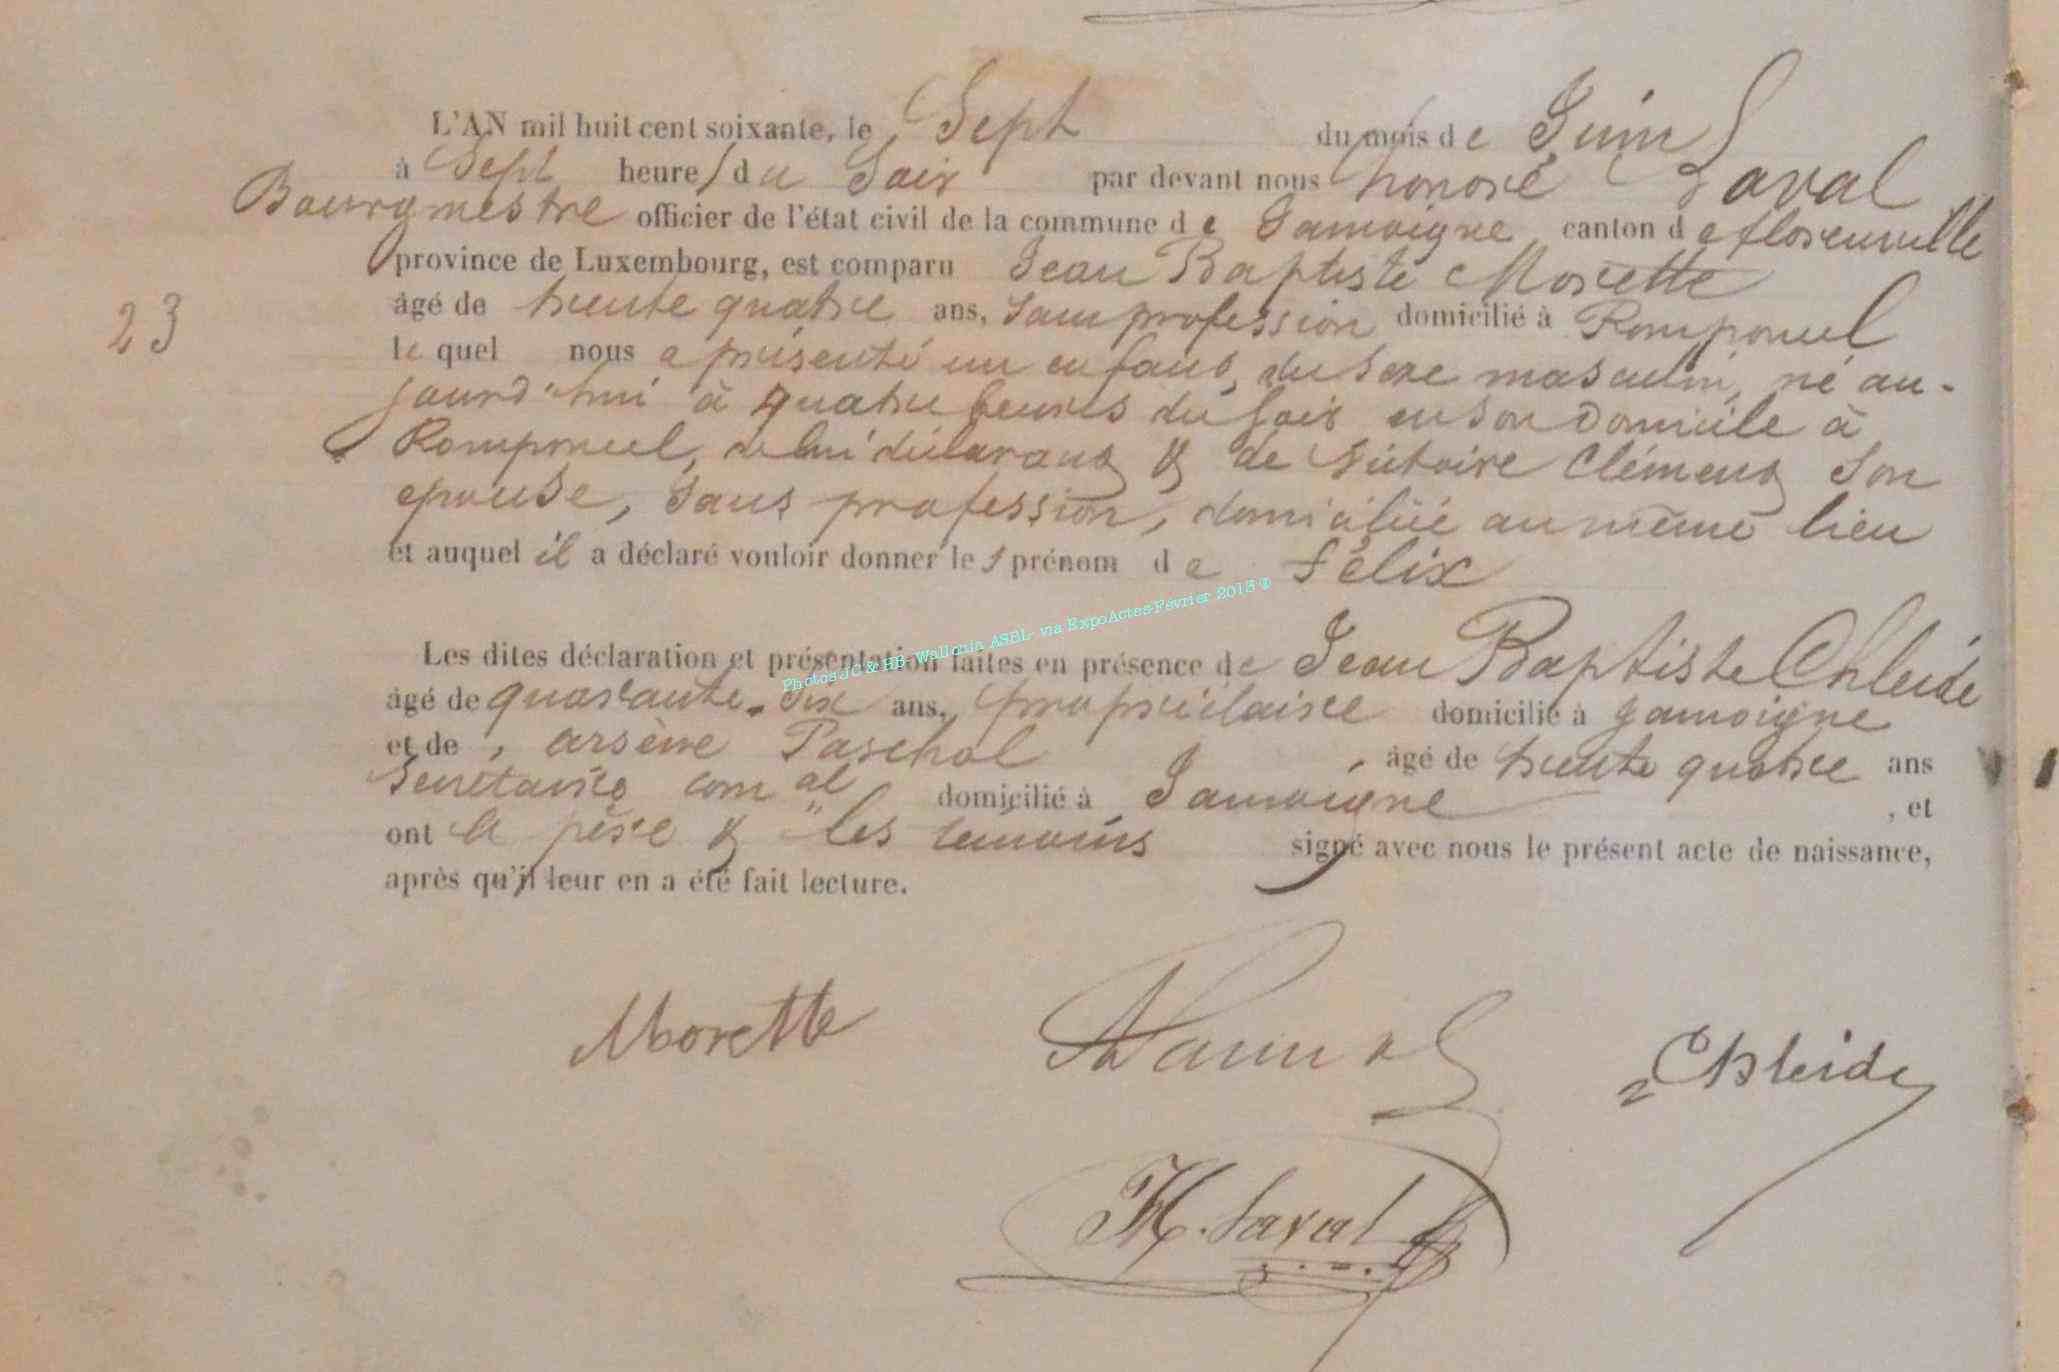 L'AN mil huit cent soixante, le Sept du mois de Juin
à Sept heures du Soir par devant nous honoré Laval
Bourgmestre officier de l'état civil de la commune de Jamoigne canton de florenville
province de Luxembourg, est comparu Jean Baptiste Morette
23
âgé de trente quatre ans, Sans profession domicilié à Romponcel
le quel nous a présenté un enfant, du Sexe masculin, né au-
jourd'hui à quatre heures du Soir en Son Domicile à
Romponcel, de lui déclarant & de Victoire Clément Son
epouse, Sans profession, domiciliée au même lieu
et auquel il a déclaré vouloir donner les prénom de félix
Photos JC & HB- Wallonia ASBL- via ExpoActes-Février 2013 ©
Les dites déclaration et présentation faites en présence de Jean Baptiste
âgé de quarante-six ans, propriétaire domicilié à jamoigne
et de, arsène Paschal, âgé de trente quatre ans
Secrétaire com al domicilié à Jamoigne, et
ont le père & les témoins signé avec nous le présent acte de naissance,
après qu'il leur en a été fait lecture.
Morette
H. Laval